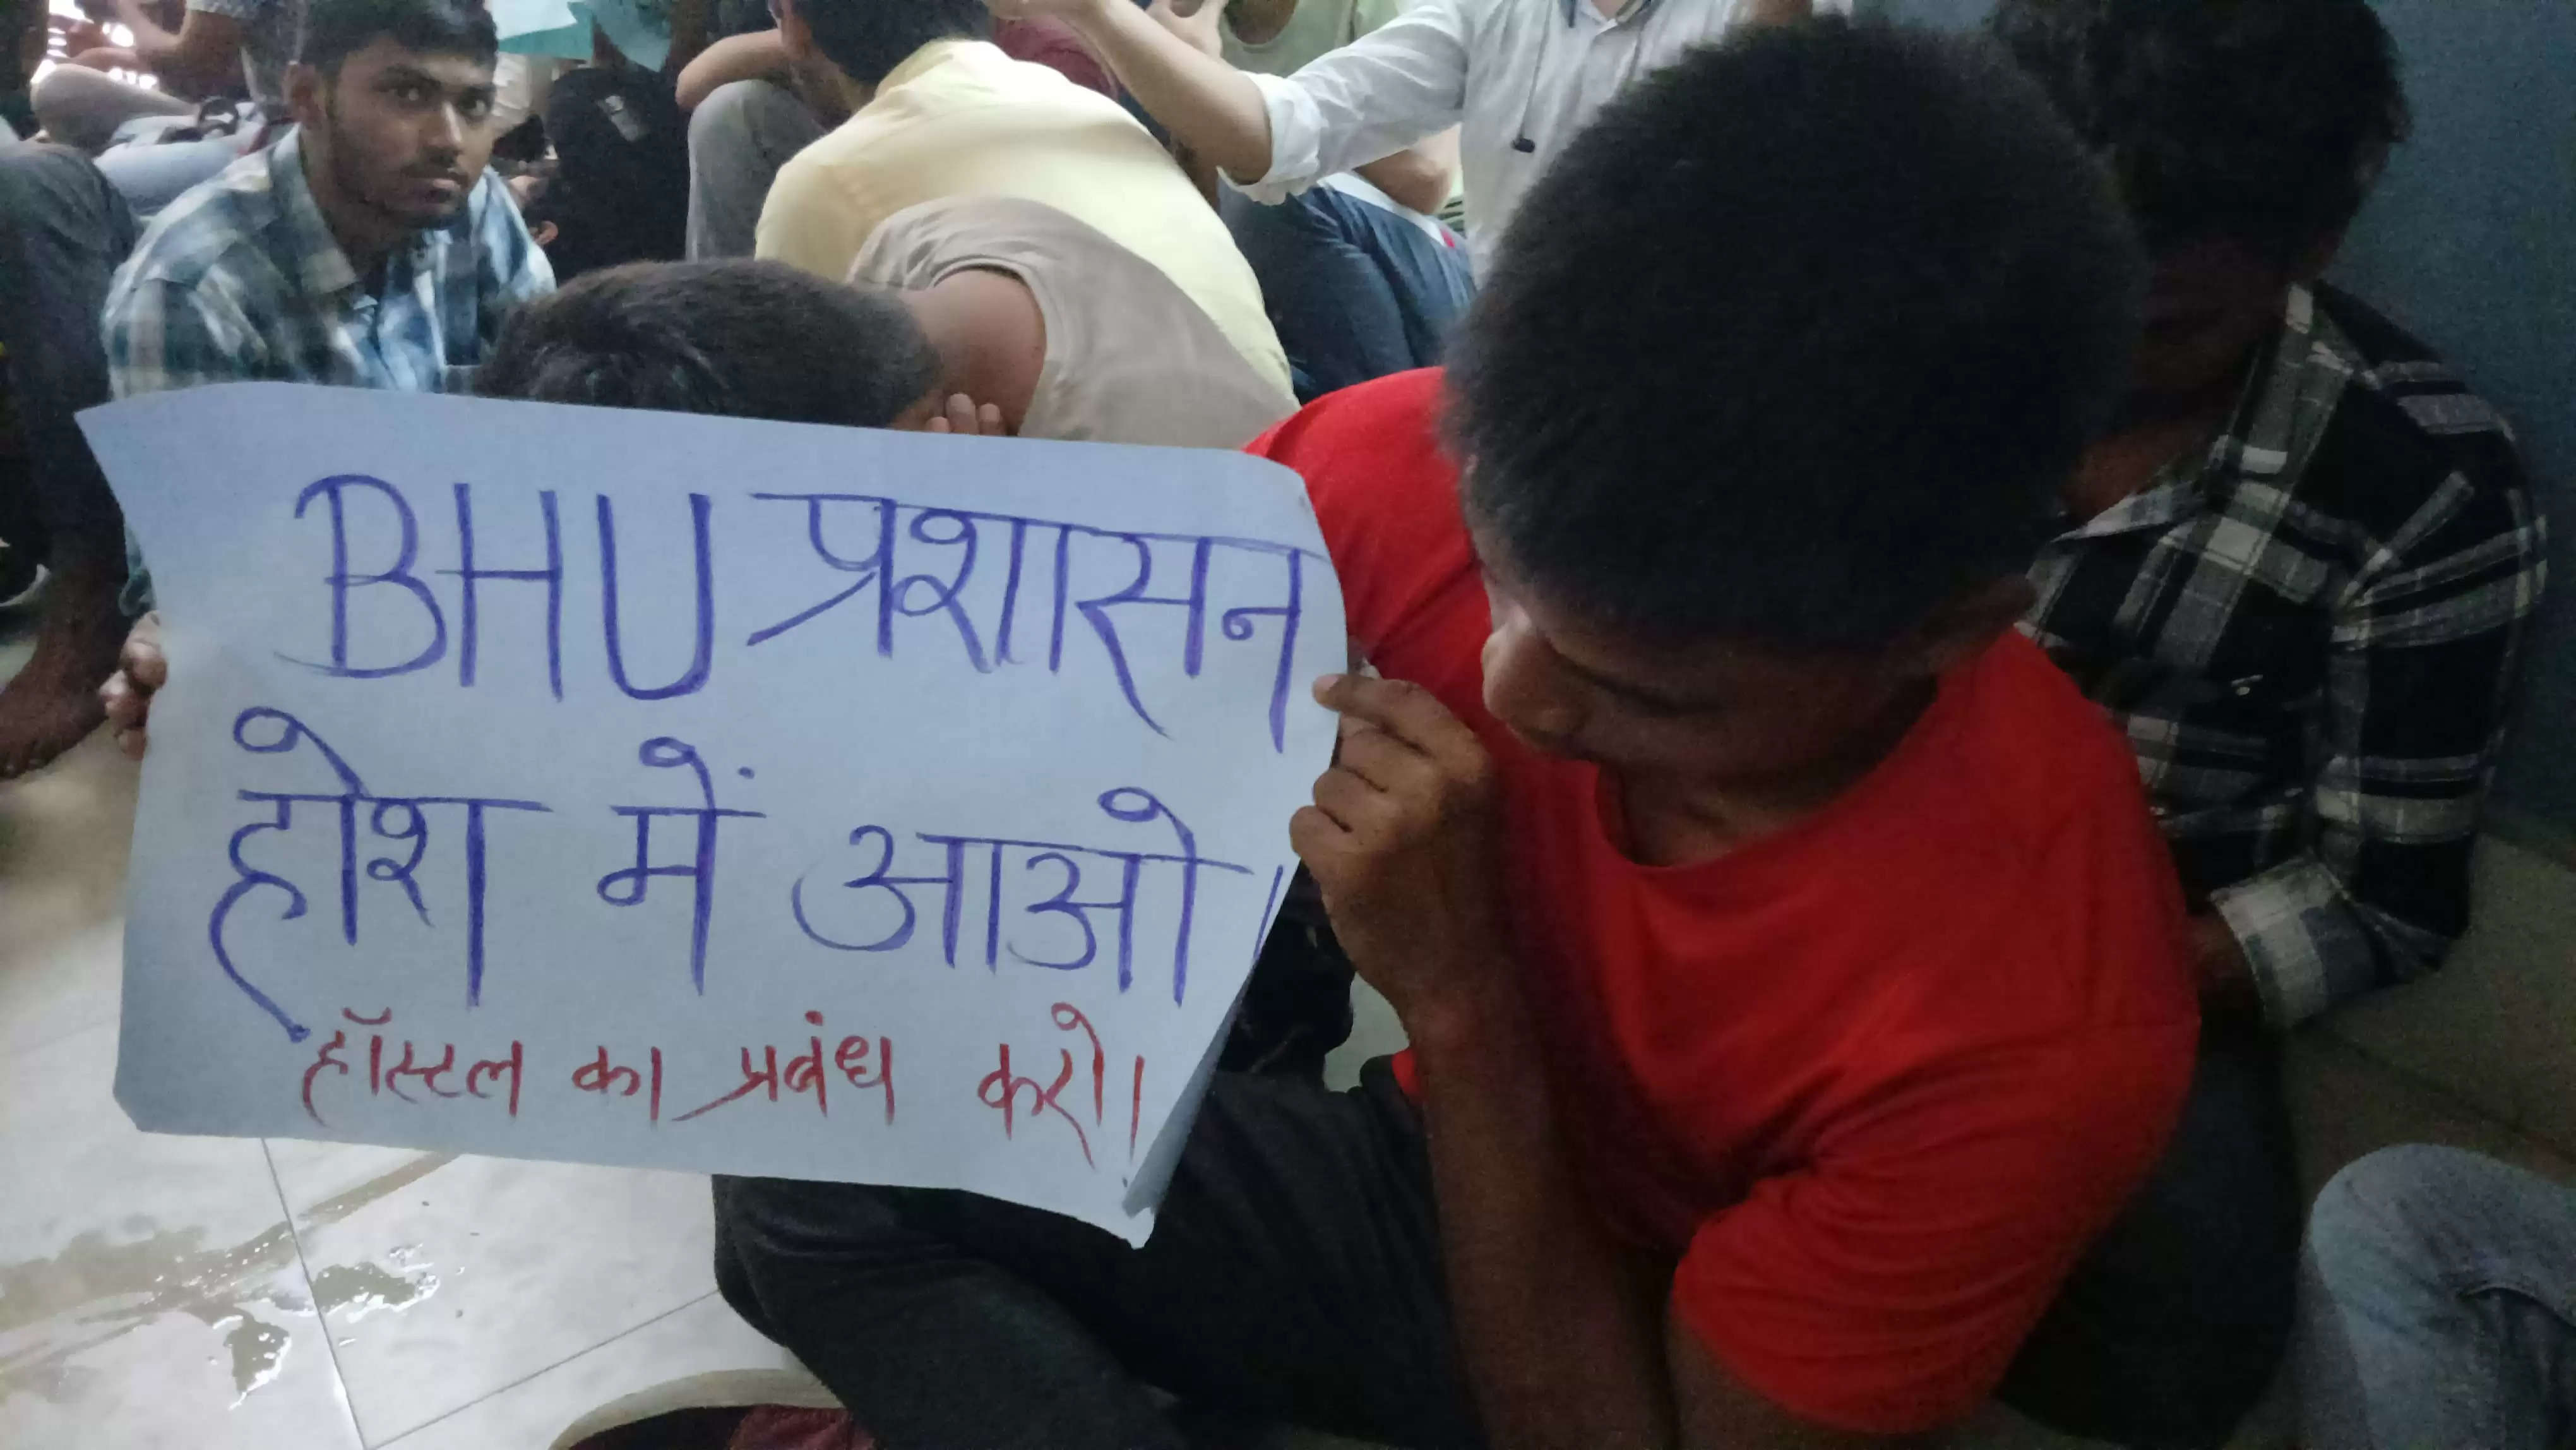 BHU प्रशासन
होश में आओ।
हॉस्टल का प्रबंध करो।